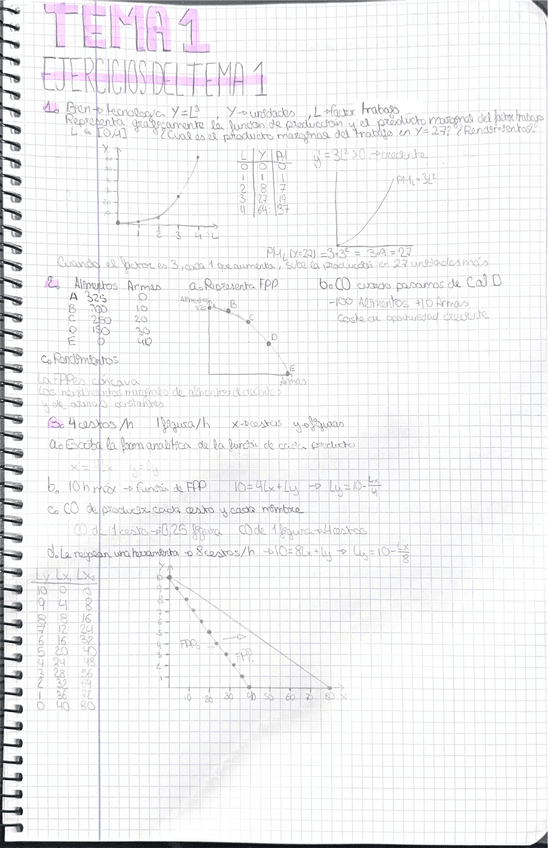 TEMA 1
EJERCICIOS DEL TEMA 1
1. Bien → tecnología Y=L³, Y→unidades, L→factor trabajo
Representa gráficamente la función de producción y el producto marginal del factor trabajo
L ∈ [0,4] ¿Cuál es el producto marginal del trabajo en Y=27? ¿Rendimientos?
L Y
0 0 0
1 1 1
2 8 7
3 27 19
4 64 37
y'=3L²>0 → creciente
PML=3L²
1 2 3 4 L
PML (Y=27) = 3·3² = 3·9 = 27
Cuando el factor es 3, cada 1 que aumenta, sube la producción en 27 unidades más
2. Alimentos Armas a. Representa FPP b. CO cuando pasamos de C a D
A 325 0
B 300 10
C 250 20
D 150 30
E 0 40
-100 Alimentos +10 Armas
Coste de oportunidad creciente
Alimentos
A
B
C
D
E
Armas
c. Rendimientos
La FPP es cóncava
Los rendimientos marginales de alimentos decrecientes
y de armas constantes
3. 4 cestos/h 1 figura/h x→cestos y→figuras
a. Escriba la forma analítica de la función de cada producto
b. 10h máx → Función de FPP 10=4Lx+Ly → Ly=10-Lx/4
c. CO de producir cada cesto y cada hombre
CO de 1 cesto → 0,25 figura CO de 1 figura → 4 cestos
d. Le regalan una herramienta → 8 cestos/h → 10=8Lx+Ly → Ly=10-Lx/8
Ly Lx₁ Lx₂
10 0 0
9 4 8
8 8 16
7 12 24
6 16 32
5 20 40
4 24 48
3 28 56
2 32 64
1 36 72
0 40 80
Y
FPP₀
FPP₁
10 20 30 40 50 60 70 80 X